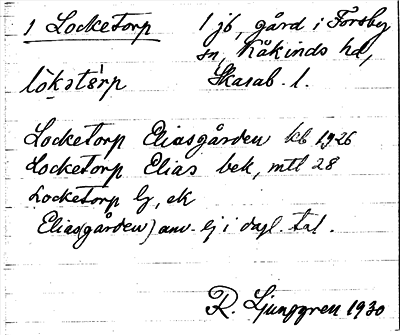 1 Locketorp 1 jb, gård i Forsby
sn, Kåkinds hd,
lòkətàrp Skarab. l.
Locketorp Eliasgården kb 1926
Locketorp Elias bek, mtl 28
Locketorp ly, ek
Elias(gården) anv. ej i dagl. tal.
R. Ljunggren 1930